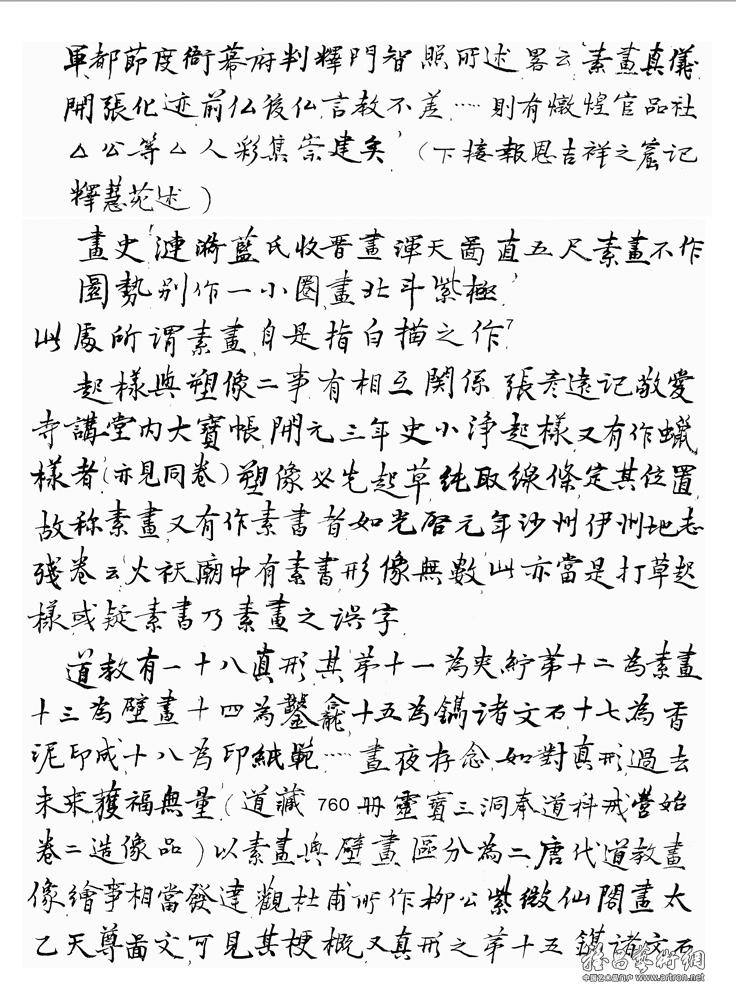 軍都節度衙幕府判釋門智照所述畧云素畫真儀
開張化迹前仏後仏言教不差……則有燉煌官品社
△公等△人彩集崇建矣（下接報恩吉祥之窟记
釋慧苑述）
畫史漣漪藍氏收晋畫渾天啚直五尺素畫不作
圜勢别作一小圈畫北斗紫極
此處所謂素畫自是指白描之作7
起樣與塑像二事有相互関係張彦遠记敬愛
寺講堂内大寶帳開元三年史小淨起樣又有作蠟
樣者（亦見同卷）塑像必先起草純取線條定其位置
故称素畫又有作素書者如光啓元年沙州伊州地志
殘卷云火祅廟中有素書形像無數此亦當是打草起
樣或疑素書乃素畫之误字
道教有一十八真形其苐十一為夾紵苐十二為素畫
十三為壁畫十四為鑿龕十五為鐫诸文石十七為香
泥印成十八為印紙範……晝夜存念如對真形過去
未來獲福無量（道藏760册靈寶三洞奉道科戒营始
卷二造像品）以素畫與壁畫區分為二唐代道教畫
像繪事相當發達觀杜甫所作柳公紫微仙閣畫太
乙天尊啚文可見其梗概又真形之苐十五鐫诸文石
雅昌藝術網
中国艺术品门户 www.artron.net